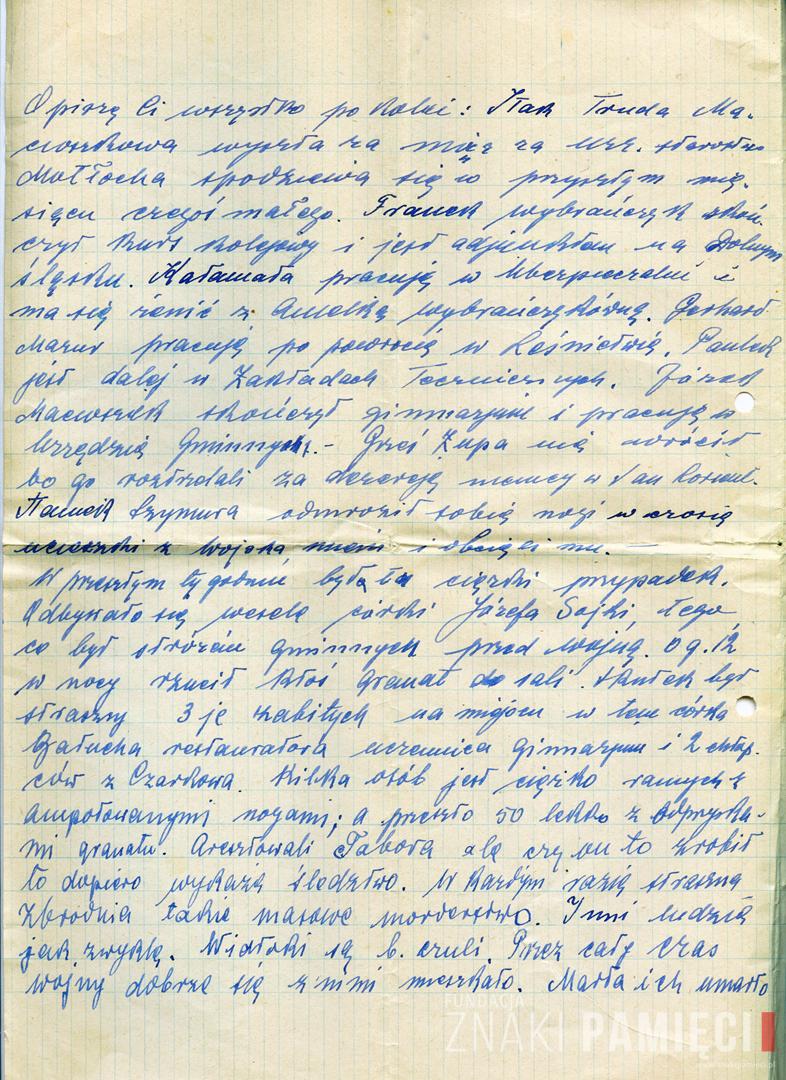 Opiszę Ci wszystko po kolei: Tak Truda Ma-
cioszkowa wyszła za mąż za urz. starostwa
Mottocha spodziewa się w przyszłym mie-
siącu czegoś małego. Franek Wybrańczyk skoń-
czył kurs kolejowy i jest adjunktem na Dolnym
Śląsku. Kałamała pracuję w Ubezpieczalni i
ma się żenić z Anielką Wybrańczykówną. Gerhard
Mazur pracuję po powrocie w Leśnictwie. Paulek
jest dalej w Zakładach Technicznych. Józek
Macioszek skończył gimnazjum i pracuję w
Urzędzie Gminnym. - Grześ Zupa nie wrócił
bo go rozstrzelali za dezercję niemcy w
Szymura odmroził sobie nogi w czasie
ucieczki z wojska i obcięli mu. -
W przeszłym tygodniu był tu ciężki przypadek.
Odbywało się wesele córki Józefa Sojki, tego
co był stróżem gminnym przed wojną. O g. 12
w nocy rzucił ktoś granat do sali. Skutek był
straszny 3 je zabitych na miejscu w tem córka
Bałucha restauratora uczennica gimnazjum i 2 chłop-
ców z Czarkowa. Kilka osób jest ciężko rannych z
amputowanymi nogami; a przeszło 50 lekko z odpryska-
mi granatu. Aresztowali Tabora ale czy on to zrobił
to dopiero wykażą śledztwo. W każdym razie straszna
zbrodnia takie masowe morderstwo. Inni ludzie
jak zwykle. Widłoki są b. czuli. Przez cały czas
wojny dobrze się z nimi mieszkało. Matka ich umarła
FUNDACJA
ZNAKI PAMIĘCI